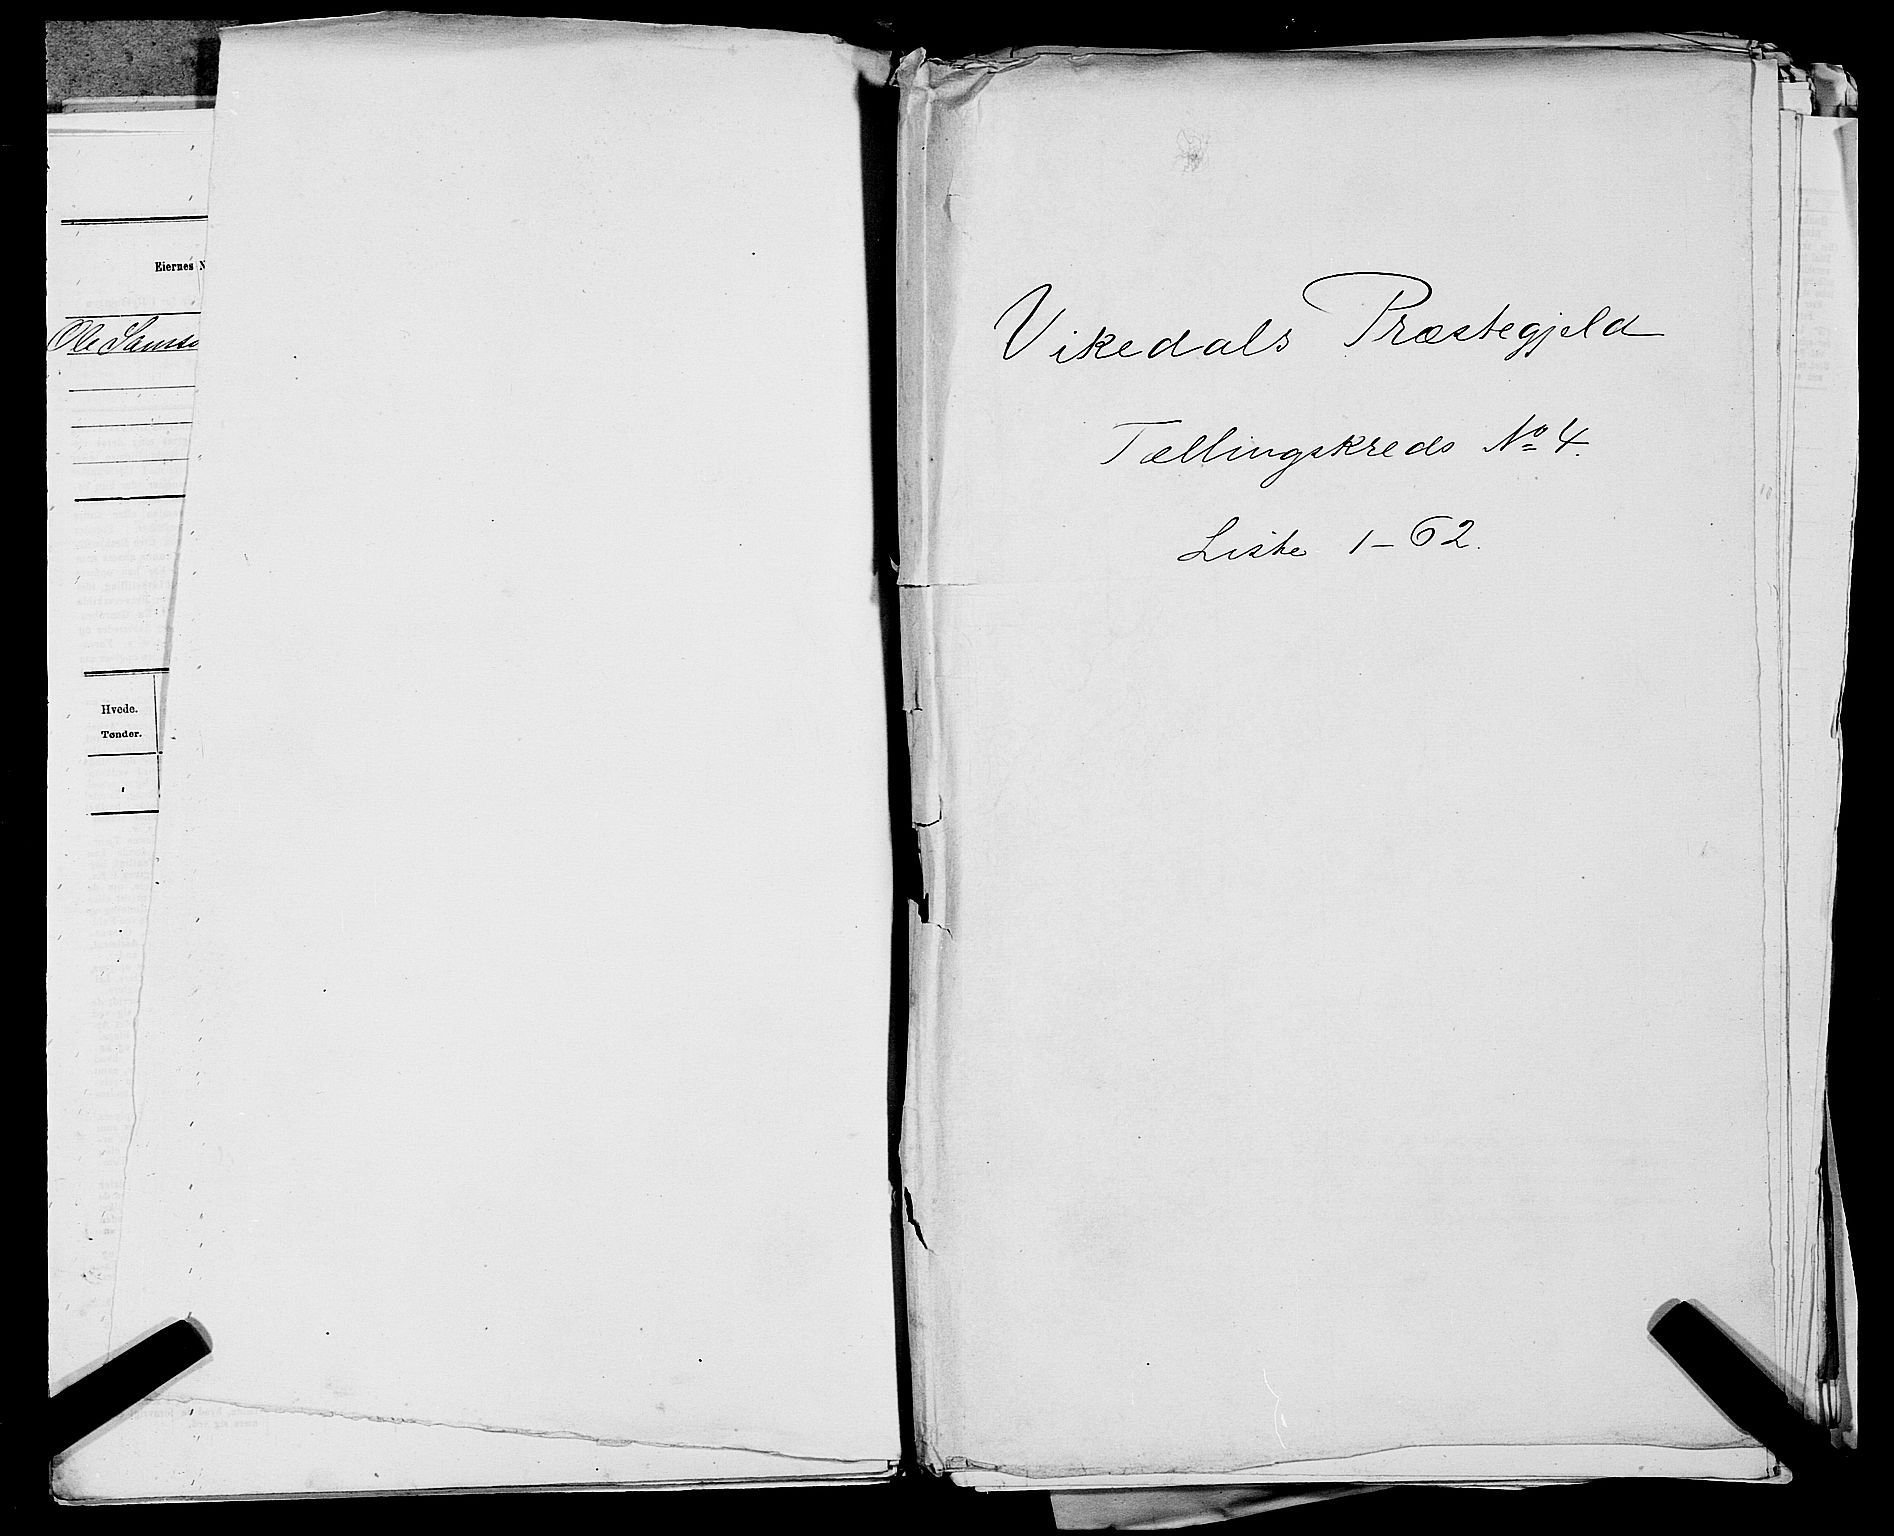 Eiernes N
Ole Samso
Hvede.
Tønder.
Vikedals Præstegjeld
Tællingskreds No 4.
Liste 1-62.